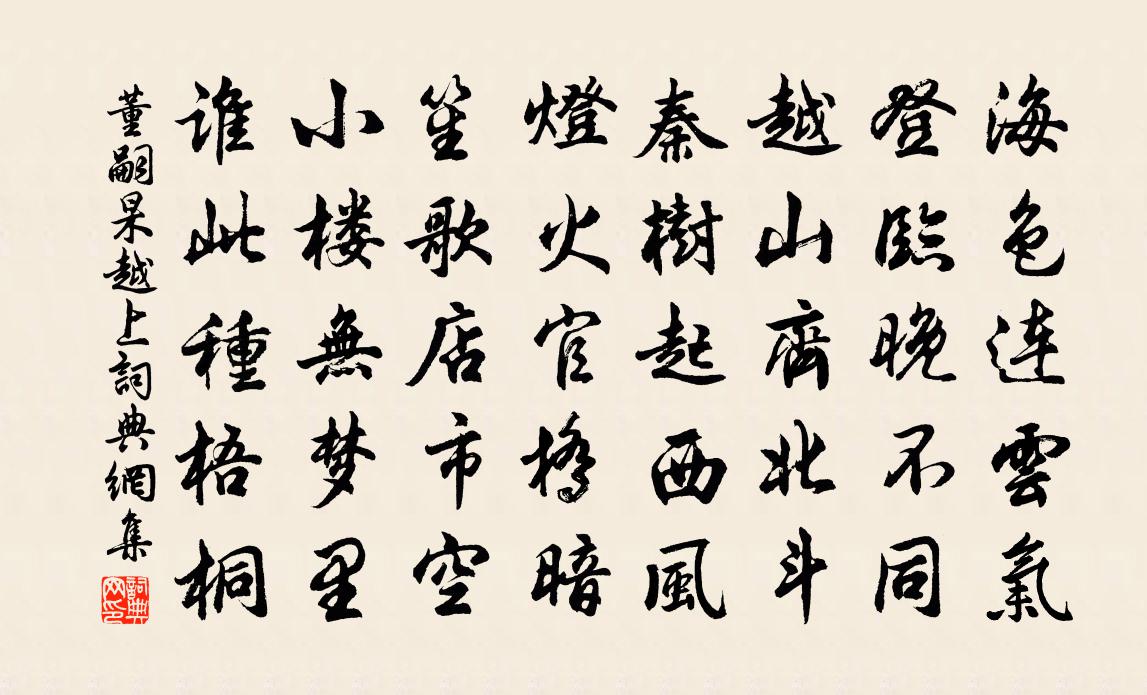 海色連雲氣
登臨晚不同
越山齊北斗
秦樹起西風
燈火官橋暗
笙歌店市空
小楼無梦里
誰此種梧桐
董嗣杲越上詞典網集
詞典网印